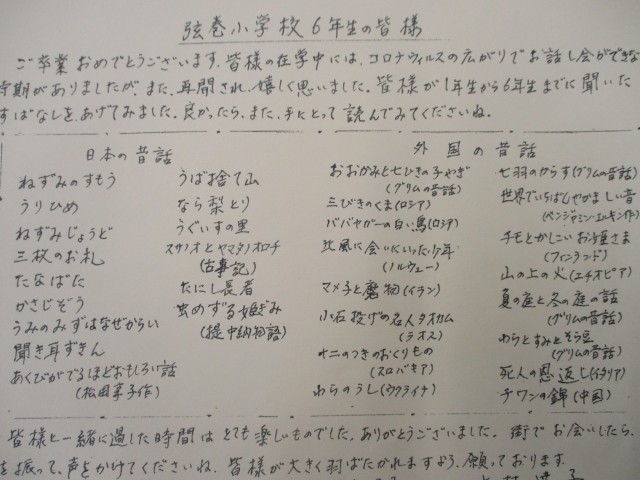 弦巻小学校6年生の皆様
ご卒業おめでとうございます。皆様の在学中には、コロナウィルスの広がりでお話し会ができな
時期がありましたが、また、再開され、嬉しく思いました。皆様が1年生から6年生までに聞いた
すばなしを、あげてみました。良かったら、また、手にとって読んでみてくださいね。
日本の昔話
ねずみのすもう
うりひめ
ねずみじょうど
三枚のお札
たなばた
かさじぞう
うみのみずはなぜからい
聞き耳ずきん
あくびがでるほどおもしろい話
(松岡享子作)
うば捨て山
なら梨とり
うぐいすの里
スサノオとヤマタノオロチ
(古事記)
たにし長者
虫めずる姫ぎみ
(堤中納物語)
外国の昔話
おおかみと七ひきの子やぎ
(グリムの昔話)
三びきのくま(ロシア)
ババヤガーの白い鳥(ロシア)
北風に会いにいった少年
(ノルウェー)
マメ子と魔物(イラン)
小石投げの名人タオカム
(ラオス)
十二のつきのおくりもの
(スロバキア)
わらのうし(ウクライナ)
七羽のからす(グリムの昔話)
世界でいちばんやかましい音
(ベンジャミン・エルキン作)
チモとかしこいお姫さま
(フィンランド)
山の上の火(エチオピア)
夏の庭と冬の庭の話
(グリムの昔話)
わらとすみとそら豆
(グリムの昔話)
死人の恩返し(イタリア)
チワンの錦(中国)
皆様と一緒に過した時間はとても楽しいものでした。ありがとうございました。街でお会いしたら、
を振って、声をかけてくださいね。皆様が大きく羽ばたかれますよう、願っております。